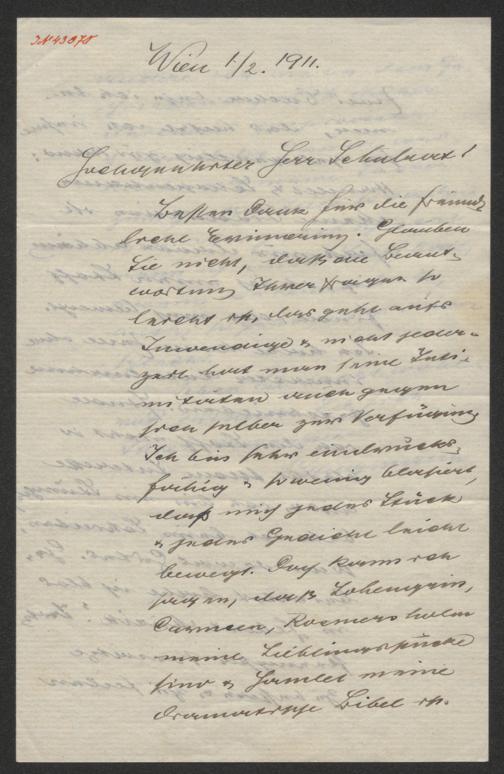 IN 43078
Wien 1./2. 1911.
Hochgeehrter Herr Schulrat!
Besten Dank für die freund-
liche Erinnerung. Glauben
Sie nicht, daß die Beant-
wortung Ihrer Fragen so
leicht ist, das geht aufs
Inwendige & nicht jeder-
zeit hat man seine Inti-
mitäten auch gegen
sich selber zur Verfügung
Ich bin sehr eindrucks-
fähig & so wenig blasiert,
daß mich jedes Stück
& jedes Gedicht leicht
bewegt. Doch kann ich
sagen, daß Lohengrin,
Carmen, Rosmersholm
meine Lieblingsstücke
sind & Hamlet meine
dramatische Bibel ist.